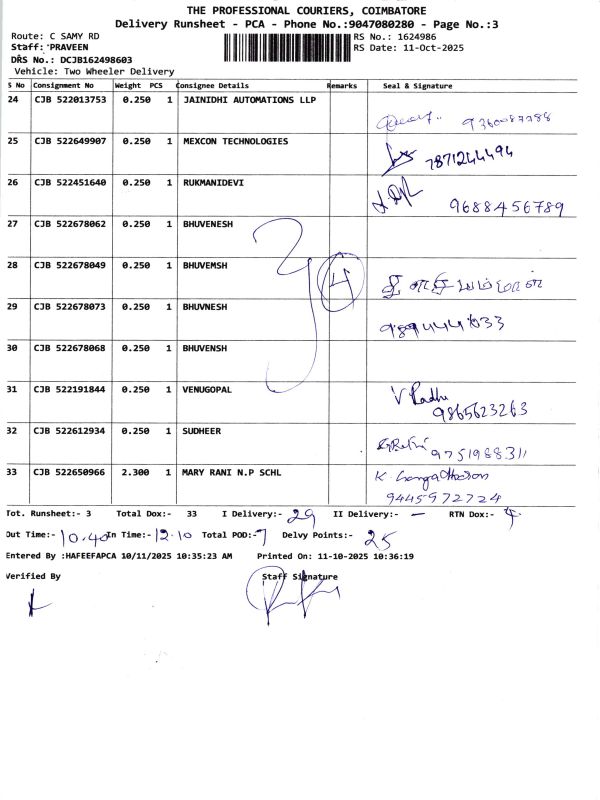 THE PROFESSIONAL COURIERS, COIMBATORE
Delivery Runsheet - PCA - Phone No.:9047080280 - Page No.:3
Route: C SAMY RD RS No.: 1624986
Staff: PRAVEEN RS Date: 11-Oct-2025
DRS No.: DCJB162498603
Vehicle: Two Wheeler Delivery
S No Consignment No Weight PCS Consignee Details Remarks Seal & Signature
24 CJB 522013753 0.250 1 JAINIDHI AUTOMATIONS LLP
25 CJB 522649907 0.250 1 MEXCON TECHNOLOGIES 7871244494
26 CJB 522451640 0.250 1 RUKMANIDEVI 9688456789
27 CJB 522678062 0.250 1 BHUVENESH
28 CJB 522678049 0.250 1 BHUVEMSH 4
29 CJB 522678073 0.250 1 BHUVNESH
30 CJB 522678068 0.250 1 BHUVENSH
31 CJB 522191844 0.250 1 VENUGOPAL V Radhu 9865623263
32 CJB 522612934 0.250 1 SUDHEER 9751988311
33 CJB 522650966 2.300 1 MARY RANI N.P SCHL K 9445972724
Tot. Runsheet:- 3 Total Dox:- 33 I Delivery:- 29 II Delivery:- — RTN Dox:- 4
Out Time:- 10.40 In Time:- 12.10 Total POD:- 7 Delvy Points:- 25
Entered By :HAFEEFAPCA 10/11/2025 10:35:23 AM Printed On: 11-10-2025 10:36:19
Verified By Staff Signature